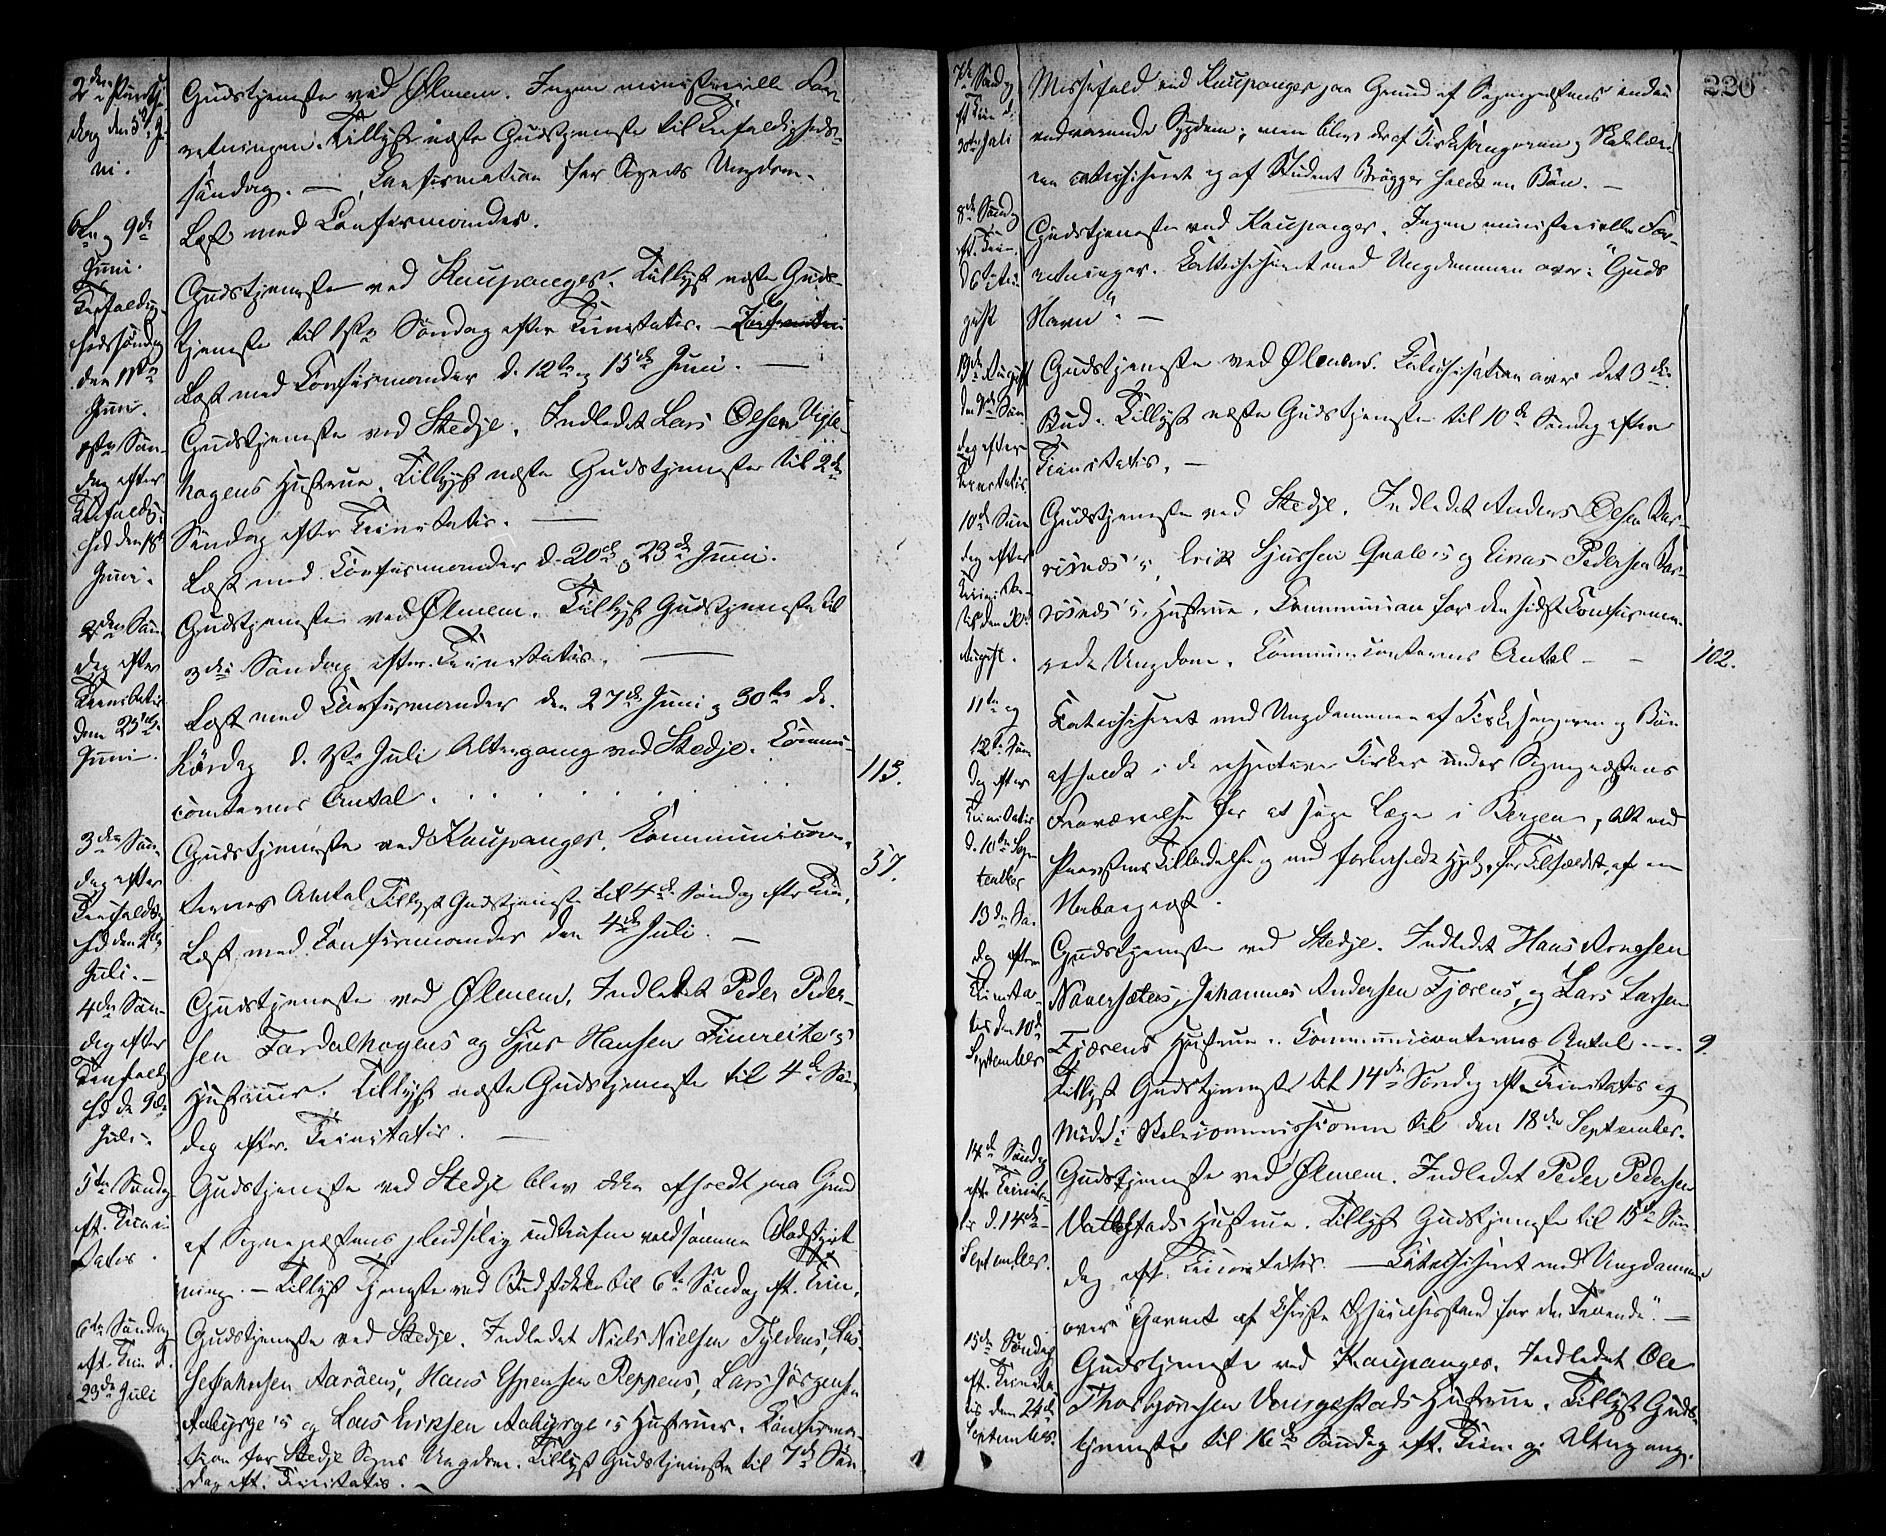 2den Pintse-
dag den 5te Ju-
ni.
Gudstjeneste ved Ølmem. Ingen ministerielle For-
retninger. Tillyst næste Gudstjeneste til Trefoldigheds-
søndag. — Confirmation for Sogns Ungdom.
6te og 9de
Juni.
Læst med Confirmander.
Trefoldig-
hedssøndag
den 11te
Juni.
Gudstjeneste ved Kaupanger. Tillyst næste Guds-
tjeneste til 1ste Søndag efter Trinitatis. —
Læst med Confirmander d. 12te og 15de Juni. —
1ste Søn-
dag efter
Trefoldig-
hed den 18de
Juni.
Gudstjeneste ved Stedje. Indledet Lars Olsen
hagens Hustrue. Tillyst næste Gudstjeneste til 2den
Søndag efter Trinitatis. —
Læst med Confirmander d. 20de og 23de Juni.
2den Søn-
dag efter
Trinitatis
den 25de
Juni.
Gudstjeneste ved Ølmem. Tillyst Gudstjeneste til
3die Søndag efter Trinitatis. —
Læst med Confirmander den 27de Juni og 30te do.
Lördag d. 1ste Juli Altergang ved Stedje. Commu-
canternes Antal . . . . . . . 113.
3die Søn-
dag efter
Trefoldig-
hed den 2den
Juli. —
Gudstjeneste ved Kaupanger. Communican-
ternes Antal 57.
Tillyst Gudstjeneste til 4de Søndag efter Trin.
Læst med Confirmander den 4de Juli. —
4de Søn-
dag efter
Trefoldig-
hed den 9de
Juli.
Gudstjeneste ved Ølmem. Indledet Peder Peder-
sen Fardalhagens og Sjur Hansen Fimreite's
Hustruer. Tillyst næste Gudstjeneste til 4de Søn-
dag efter Trinitatis. —
5te Søndag
eft. Trini-
tatis.
Gudstjeneste ved Stedje blev ikke afholdt paa Grund
af Sognepræstens pludselig indtrufne voldsomme Blodstyrt-
ning. — Tillyst Tjeneste ved Budstikke til 6te Søndag eft. Trin.
6te Søndag
eft. Trin d.
23de Juli
Gudstjeneste ved Stedje. Indledet Niels Nielsen Tylden's, Las-
se Johnsen Aarøens, Hans Espensen Reppens, Lars Jörgensen
Aabyrge's og Lars Eriksen Aabyrge's Hustruer. Confirma-
tion for Stedje Sogns Ungdom. Tillyst Gudstjeneste til 7de Søn-
dag eft. Trinitatis. —
220
7de Søndag
eft Trin d.
30te Juli
Messefald ved Kaupanger paa Grund af Sognepræstens endnu
vedvarende Sygdom; men blev der af Kirkesangeren og Skolelære-
ren catechiseret og af Student Brøgger holdt en Bön. —
8de Søndag
eft. Trin.
d 6te Au-
gust
Gudstjeneste ved Kaupanger. Ingen ministerielle For-
retninger. Catechiseret med Ungdommen over: "Guds
Navn". —
13de August
den 9de Søn-
dag efter
Trinitatis.
Gudstjeneste ved Ølmem. Catechisation over det 3die
Bud. Tillyst næste Gudstjeneste til 10de Søndag efter
Trinitatis. —
10de Søn-
dag efter
Trinita-
tis den 20de
August.
Gudstjeneste ved Stedje. Indledet Anders Olsen Bar-
snæs's, Erik Sjursen Qvale's og Einar Pedersen Bar-
snæs's Hustrue. Communion for den sidst Confirme-
rede Ungdom. Communicanternes Antal — — 102.
11te og
12te Søn-
dag efter
Trinitatis
d. 10de Sep-
tember
Catechiseret med Ungdommen af Kirkesangeren og Bön
afholdt i de respective Kirker under Sognepræstens
Fraværelse for at söge Læge i Bergen, Alt ved
Provstens Tilladelse og med forbeholdt Hjelp for Tilfældet af en
Nabopræst.
13de Søn-
dag efter
Trinita-
tis den 10de
September
Gudstjeneste ved Stedje. Indledet Hans Arnesen
Navarsetens, Johannes Andersen Fjærens, og Lars Larsen
Fjærens Hustrue. Communicanternes Antal .... 9.
Tillyst Gudstjeneste til 14de Søndag efter Trinitatis og
Möde i Skolecommissionen til den 18de September.
14de Søndag
efter Trinita-
tis d. 14de
September.
Gudstjeneste ved Ølmem. Indledet Peder Pedersen
Vattestads Hustrue. Tillyst Gudstjeneste til 15de Søn-
dag eft. Trinitatis. — Catechiseret med Ungdommen
over: "Gavnet af Christi Ophøielsesstand for de Troende". —
15de Søndag
eft. Trinita-
tis den 24de
September.
Gudstjeneste ved Kaupanger. Indledet Ole
Thorbjørnsen Vangestads Hustrue. Tillyst Guds-
tjeneste til 16de Søndag eft. Trin. og Altergang.